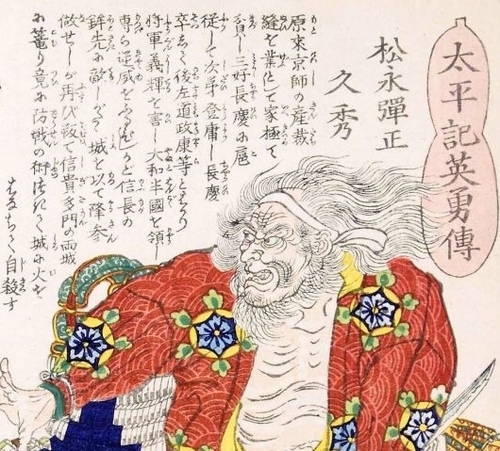 太平記英勇傳
松永彈正
久秀
原来京師の産裁
縫を業として家極て
貧し三好長慶に扈
従して次第登庸し長慶
卒して後左道政康等とはかり
将軍義輝を害し大和半國を領し
専ら逆威をふるひしが信長の
鉾先に敵しがたく城を以降参
做せしが再び叛て信貴多門の両城
に篭り竟に防戦の術つきて城に火を
はなちて自殺す